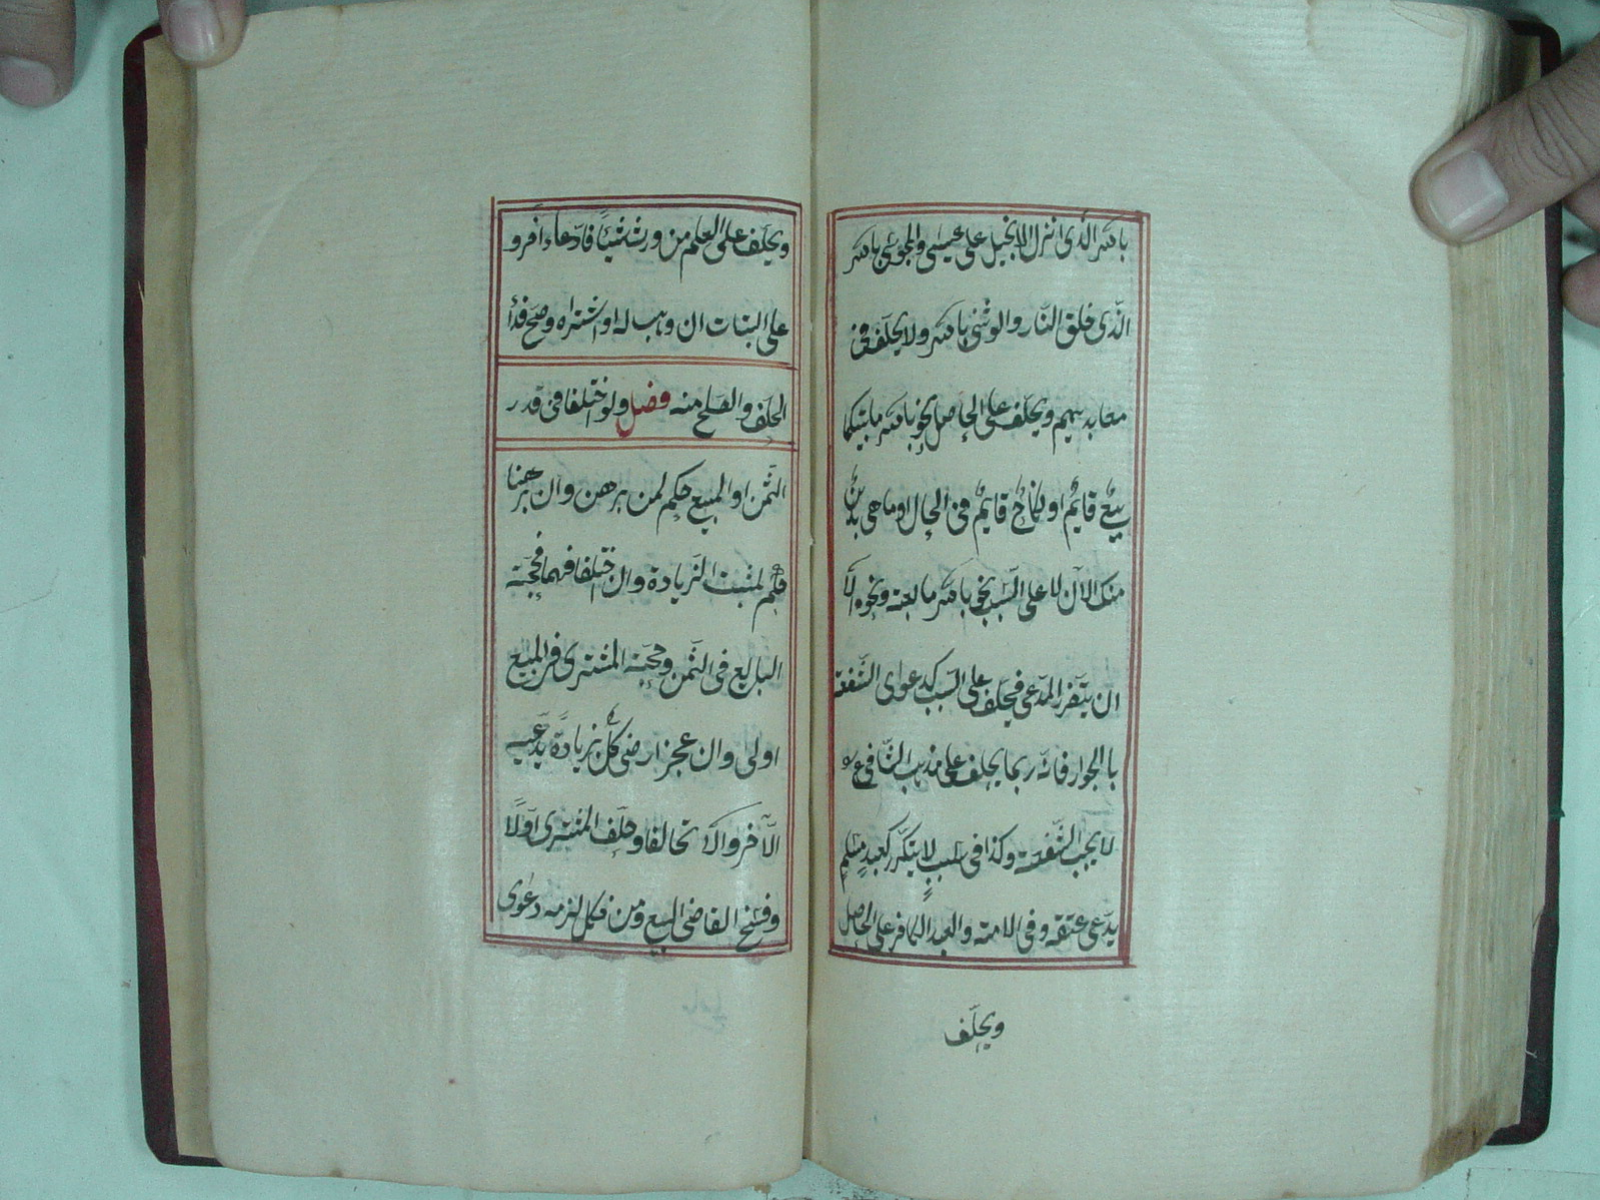 بالله الّذى انزل الانجيل على عيسى والمجوسى بالله
الّذى خلق النّار والوثنى بالله ولا يحلّف فى
معابدهم ويحلّف على الحاصل نحو بالله ما بينكما
بيعٌ قايمٌ او نكاحٌ قايمٌ فى الحال او ما هى بائنٌ
منك الآن لا على السّبب نحو بالله ما بعته ونحوه الّا
ان يتضرّر المدّعى فيحلّف على السّبب كدعوى الشّفعة
بالجوار فانّه ربما يحلف على مذهب الشّافعى انّه
لا يجب الشّفعة وكذا فى سببٍ لا يتكرّر كعبدٍ مسلمٍ
يدّعى عتقه وفى الامة والعبد الكافر على الحاصل
ويحلّف
ويحلّف على العلم من ورث شيئًا فادّعاه آخر و
على البتات ان وهب له او اشتراه وصحّ فداء
الحلف والصّلح منه فصل ولو اختلفا فى قدر
الثّمن او المبيع حكم لمن برهن وان برهنا
فلمثبت الزيادة وان اختلفا فيهما فحجّة
البايع فى الثّمن وحجّة المشترى فى المبيع
اولى وان عجزا رضى كلٌّ بزيادة يدّعيه
الآخر والّا تحالفا وحلّف المشترى اوّلًا
وفسخ القاضى البيع ومن نكل لزمه دعوى